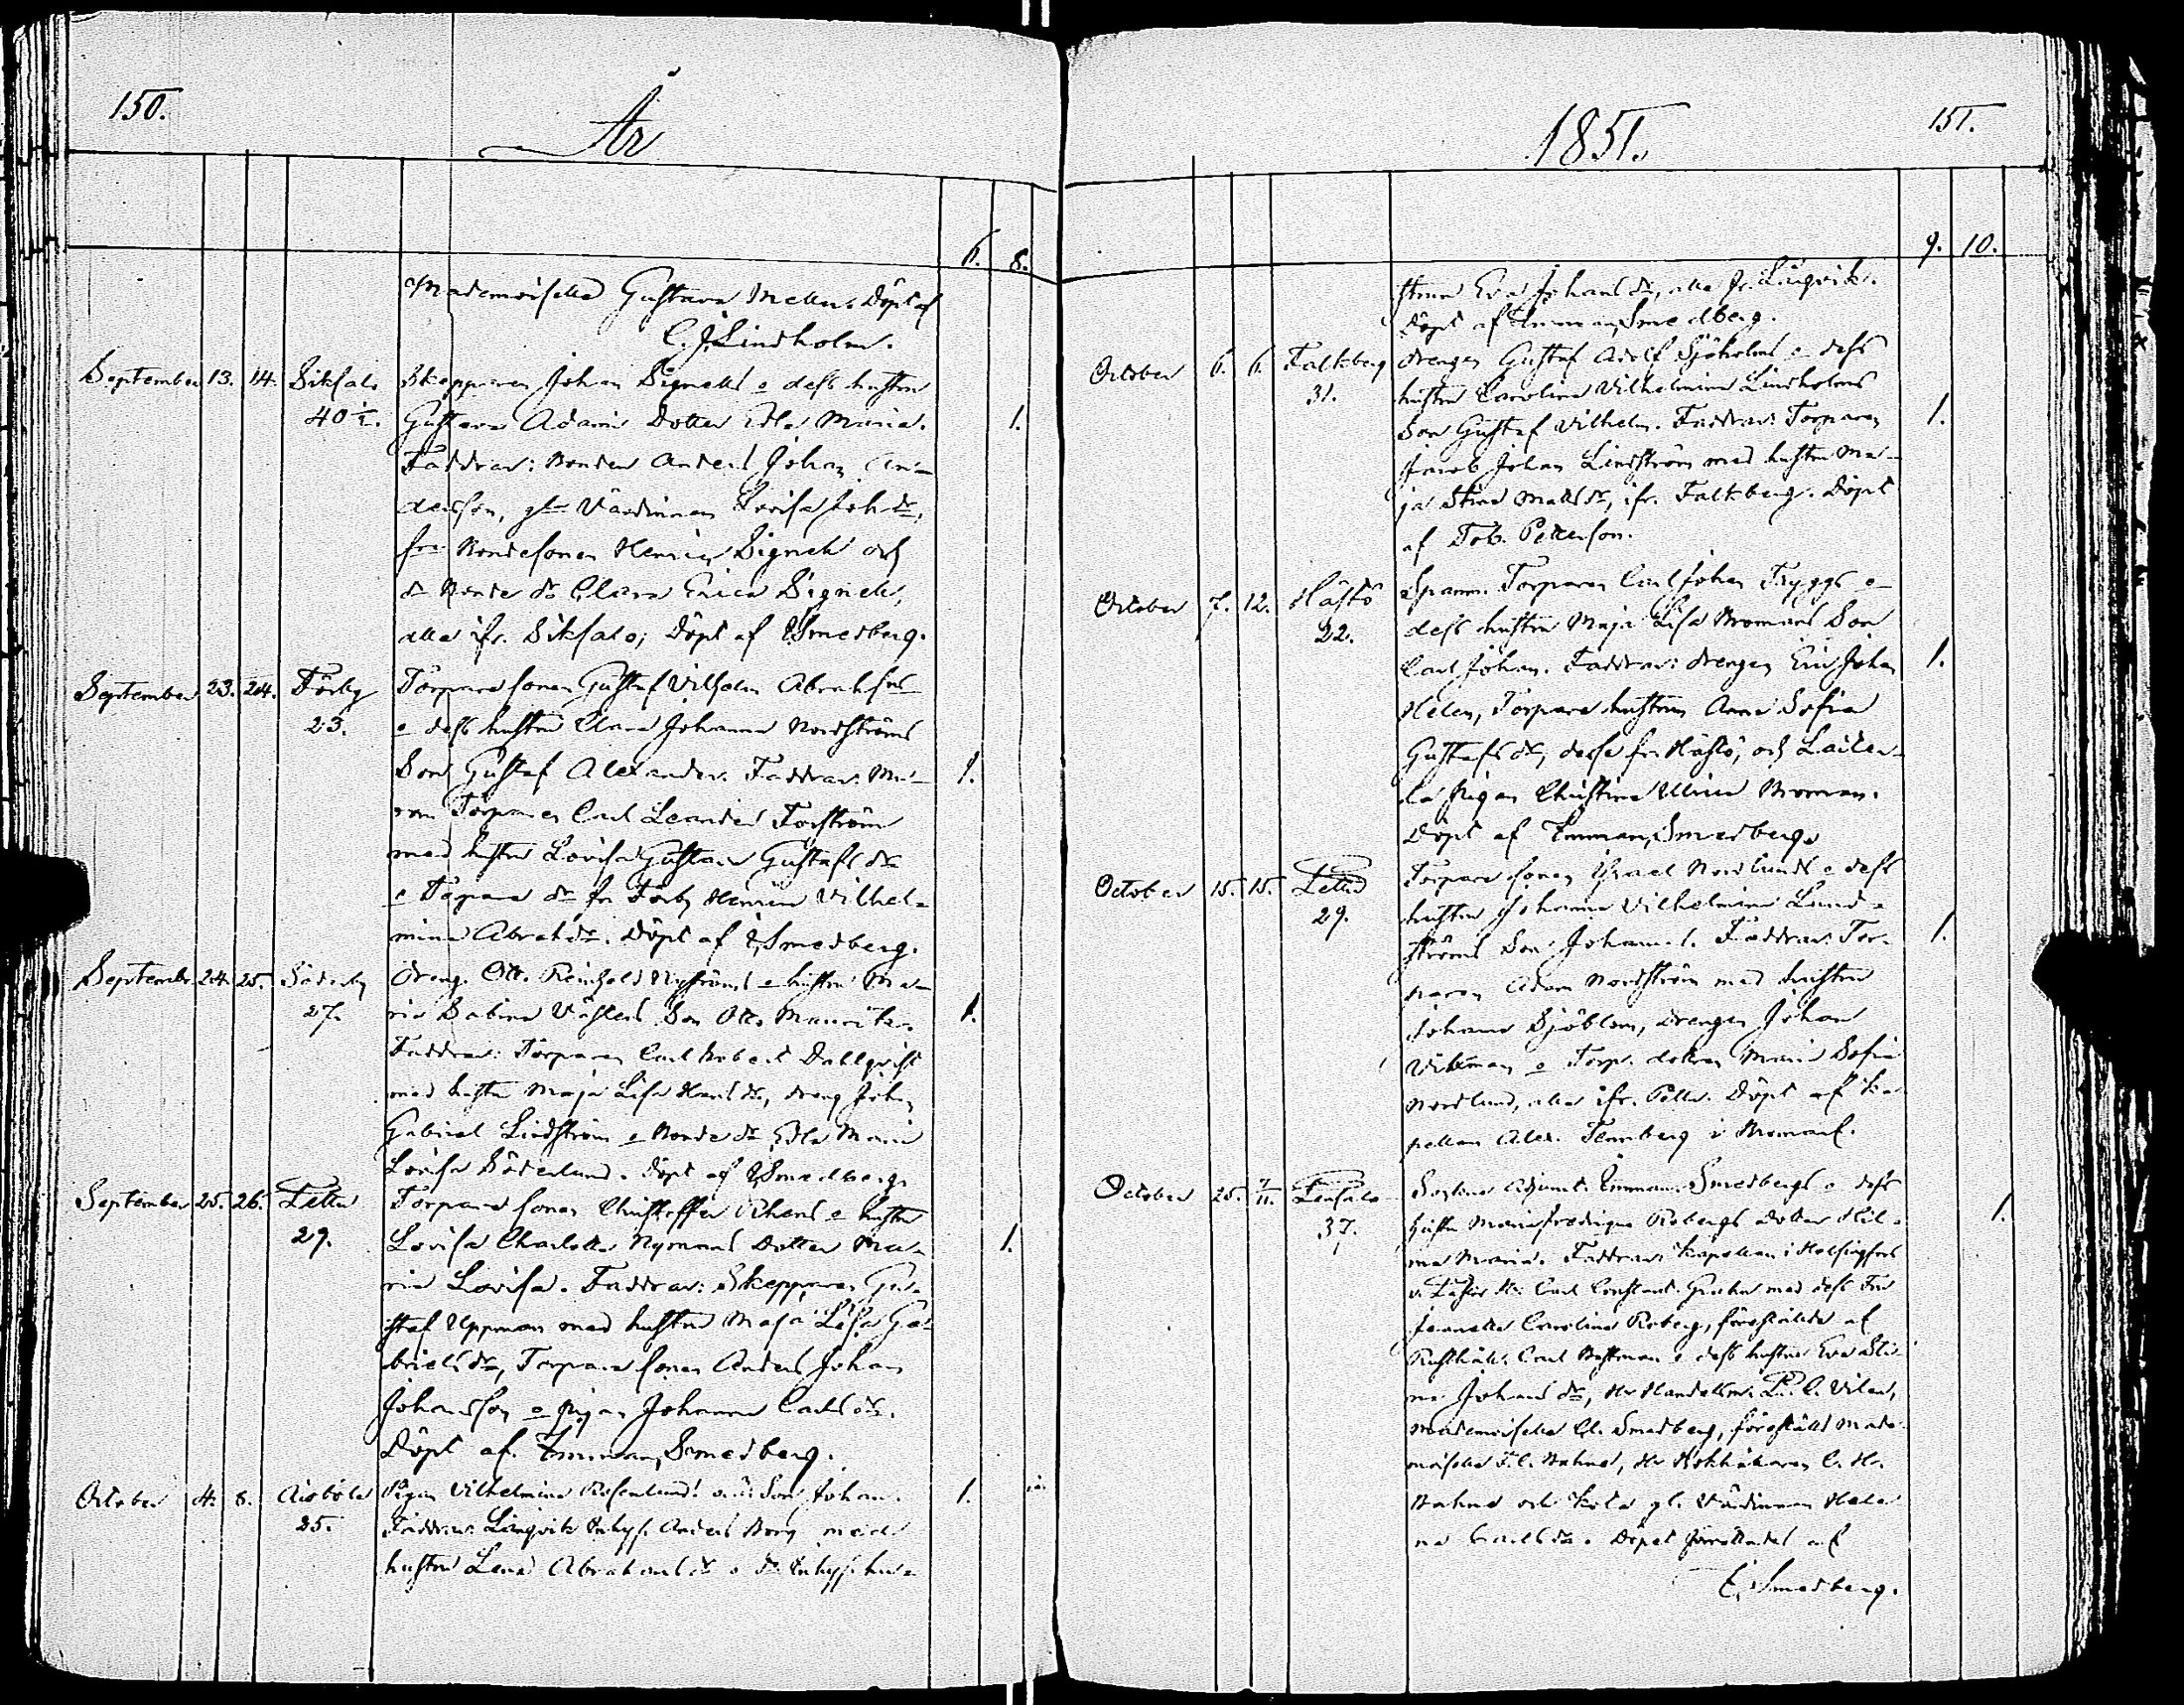 150.
År
6. 8.
Mademoiselle Gustava Mellin. Döpt af
C. J. Lindholm.
September 13. 14. Siksalo Skepparen Johan Signells o dess hustru
40½. Gustava Adami Dotter Edla Maria. 1.
Faddrar: Bonden Anders Johan An-
dersson, gla Värdinnan Lovisa Joh dr,
fr. Bondesonen Henric Signell och
d. Bonde dr Clara Erica Signell,
alla ifr. Siksalo; Döpt af E Smedberg.
September 23. 24. Förby Torpare sonen Gustaf Vilhelm Abrahfns
23. o dess hustru Clara Johanna Nordströms
Son Gustaf Alexander. Faddrar: 1.
Torparen Carl Leander Forström
med hustru Lovisa Gustava Gustafs dr
o Torpare dr fr Förby Henrica Vilhel-
mina Abrah dr. Döpt af E Smedberg.
September 24. 25. Söderby Dreng. Otto Reinhold Nyströms o hustru Ma-
27. ria Sabina Son Otto Mauritz. 1.
Faddrar: Torparen Carl Robert Dahlqvist
med hustru Maja Lisa Hans dr, dreng Johan
Gabriel Lindström o Bonde dr Edla Maria
Lovisa Söderlund. Döpt af E Smedberg.
September 25. 26. Tetta Torpare sonen Christoffer o hustru
29. Lovisa Charlotta Nymans Dotter Ma- 1.
ria Lovisa. Faddrar: Skepparen Gu-
staf Uppman med hustru Maja Lisa Ga-
briels dr, Torpare sonen Anders Johan
Johansson o pigan Johanna Carls dr.
Döpt af Emman. Smedberg.
October 4. 8. Aisböle Pigan Vilhelmina Rosenlunds Son Johan. 1.
25. Faddrar: Långvik Inhys. Anders Borg med
hustru Lena Abrahams dr o d. Inhys. hu-
1851.
151.
9. 10.
strun Eva Johans dr, alla fr. Långvik.
Döpt af Emman. Smedberg.
October 6. 6. Falkberg Drengen Gustaf Adolf Sjöholms o dess
31. hustru Carolina Vilhelmina Lindholms
Son Gustaf Vilhelm. Faddrar: Torparen 1.
Jacob Johan Lindström med hustru Ma-
ja Stina Matts dr, ifr. Falkberg. Döpt
af Tob. Petterson.
October 7. 12. Hästö Torparen Carl Johan Tryggs o
22. dess hustru Maja Lisa Bromans Son
Carl Johan. Faddrar: drengen Eric Johan 1.
Helen, Torpare hustrun Anna Sofia
Gustafs dr, dessa fr. Hästö, och
la pigan Christina Ulrica Broman.
Döpt af Emman. Smedberg.
October 15. 15. Tetta Torpare sonen Israel Nordlunds o dess
29. hustru Johanna Vilhelmina Lund-
ströms Son Johannes. Faddrar: Tor- 1.
paren Adam Nordström med hustrun
Johanna Sjöblom, drengen Johan
Vikman o Torp. dottren Maria Sofia
Nordlund, alla ifr. Döpt af Ka-
pellan Alex. Tennberg i Bromarf.
October 25. 7/11. Adjunct. Emman. Smedbergs o dess
37. hustru Maria Fredrique Robergs dotter Hil- 1.
ma Maria. Faddrar: Kapellan i Helsingfors
Carl Constant. Grahn med dess Fru
Jeannette Carolina Roberg, föreställde af
Rusthåll. Carl Westman o dess hustru Eva Sti-
na Johans dr, Hr Handelsm. Vilen,
Mademoiselle Smedberg, föreställd Made-
moiselle
och gl. Värdinnan Hele-
na Carls dr. Döpet förrättadt af
E. Smedberg.